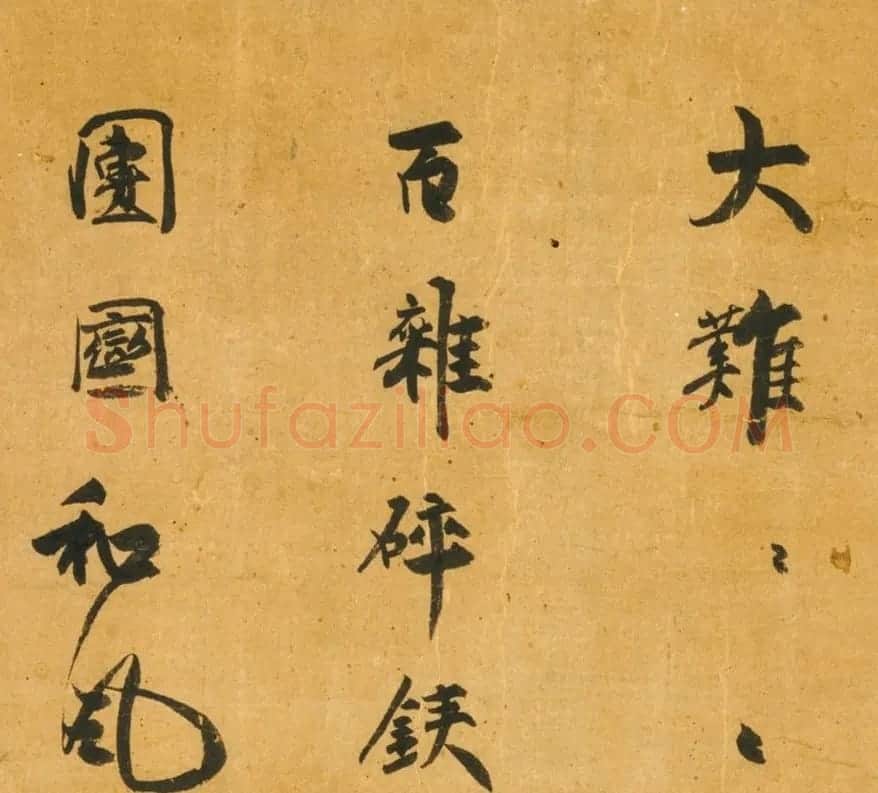 大難々々
百雜碎鉄
團圞和風
Shufaziliao.COM